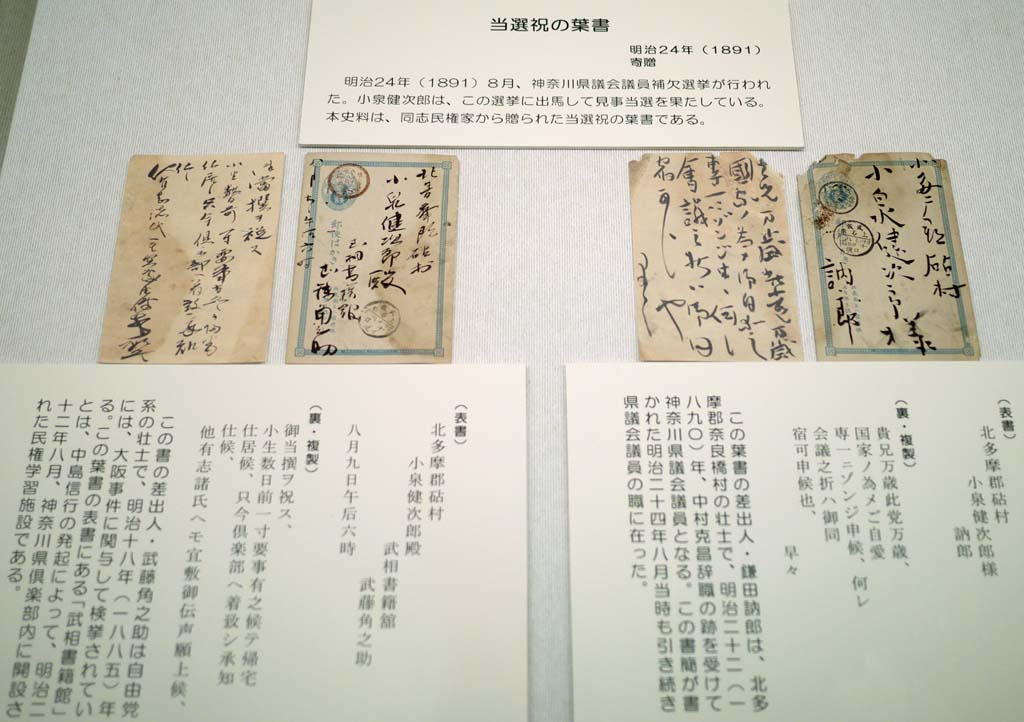 当選祝の葉書
明治24年（1891）
寄贈
明治24年（1891）８月、神奈川県議会議員補欠選挙が行われ
た。小泉健次郎は、この選挙に出馬して見事当選を果たしている。
本史料は、同志民権家から贈られた当選祝の葉書である。
小泉健次郎殿
郵便はかき
小泉健次郎様
訥郎
（表書）
北多摩郡砧村
小泉健次郎様
訥郎
（裏・複製）
貴兄万歳此党万歳、
国家ノ為メご自愛
専一ニゾンジ申候、何レ
会議之折ハ御同
宿可申候也、
早々
この葉書の差出人・鎌田訥郎は、北多
摩郡奈良橋村の壮士で、明治二十二（一
八九〇）年、中村克昌辞職の跡を受けて
神奈川県議会議員となる。この書簡が書
かれた明治二十四年八月当時も引き続き
県議会議員の職に在った。
（表書）
北多摩郡砧村
小泉健次郎殿
武相書籍舘
武藤角之助
八月九日午后六時
（裏・複製）
御当撰ヲ祝ス、
小生数日前一寸要事有之候テ帰宅
仕居候、只今倶楽部へ着致シ承知
仕候、
他有志諸氏へモ宜敷御伝声願上候、
この書の差出人・武藤角之助は自由党
系の壮士で、明治十八年（一八八五）年
には、大阪事件に関与して検挙されてい
る。この葉書の表書にある「武相書籍館」
とは、中島信行の発起によって、明治二
十二年八月、神奈川県倶楽部内に開設さ
れた民権学習施設である。